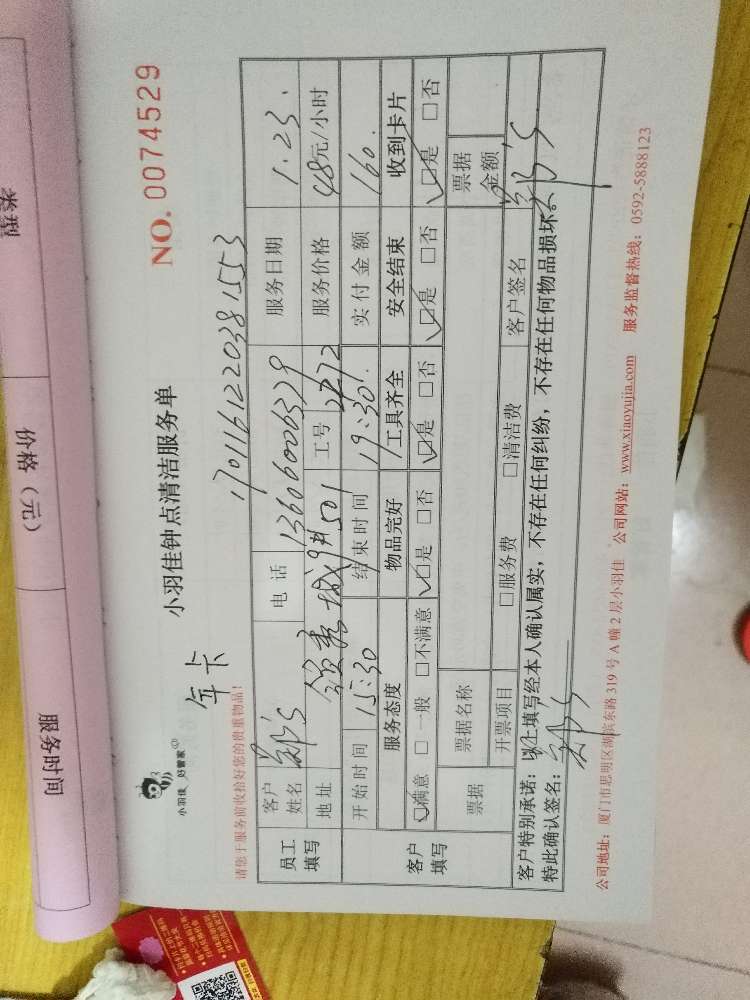 类型
价格（元）
服务时间
小羽佳 好管家
年卡
小羽佳钟点清洁服务单
NO. 0074529
请您于服务前收拾好您的贵重物品！
17011612203381553
员工填写
客户姓名 郑's 电话 13606006379 服务日期 1.23.
地址 9# 501 工号 服务价格 48元/小时
开始时间 15:30 结束时间 19:30! 实付金额 160.
客户填写
服务态度 物品完好 工具齐全 安全结束 收到卡片
☑满意 □一般 □不满意 ☑是 □否 ☑是 □否 ☑是 □否 ☑是 □否
票据 票据名称 票据金额
开票项目 □服务费 □清洁费 客户签名 郑's
客户特别承诺：以上填写经本人确认属实，不存在任何纠纷，不存在任何物品损坏。
特此确认签名：郑's
公司地址：厦门市思明区湖滨东路 319 号 A 幢 2 层小羽佳 公司网站：www.xiaoyujia.com 服务监督热线：0592-5888123